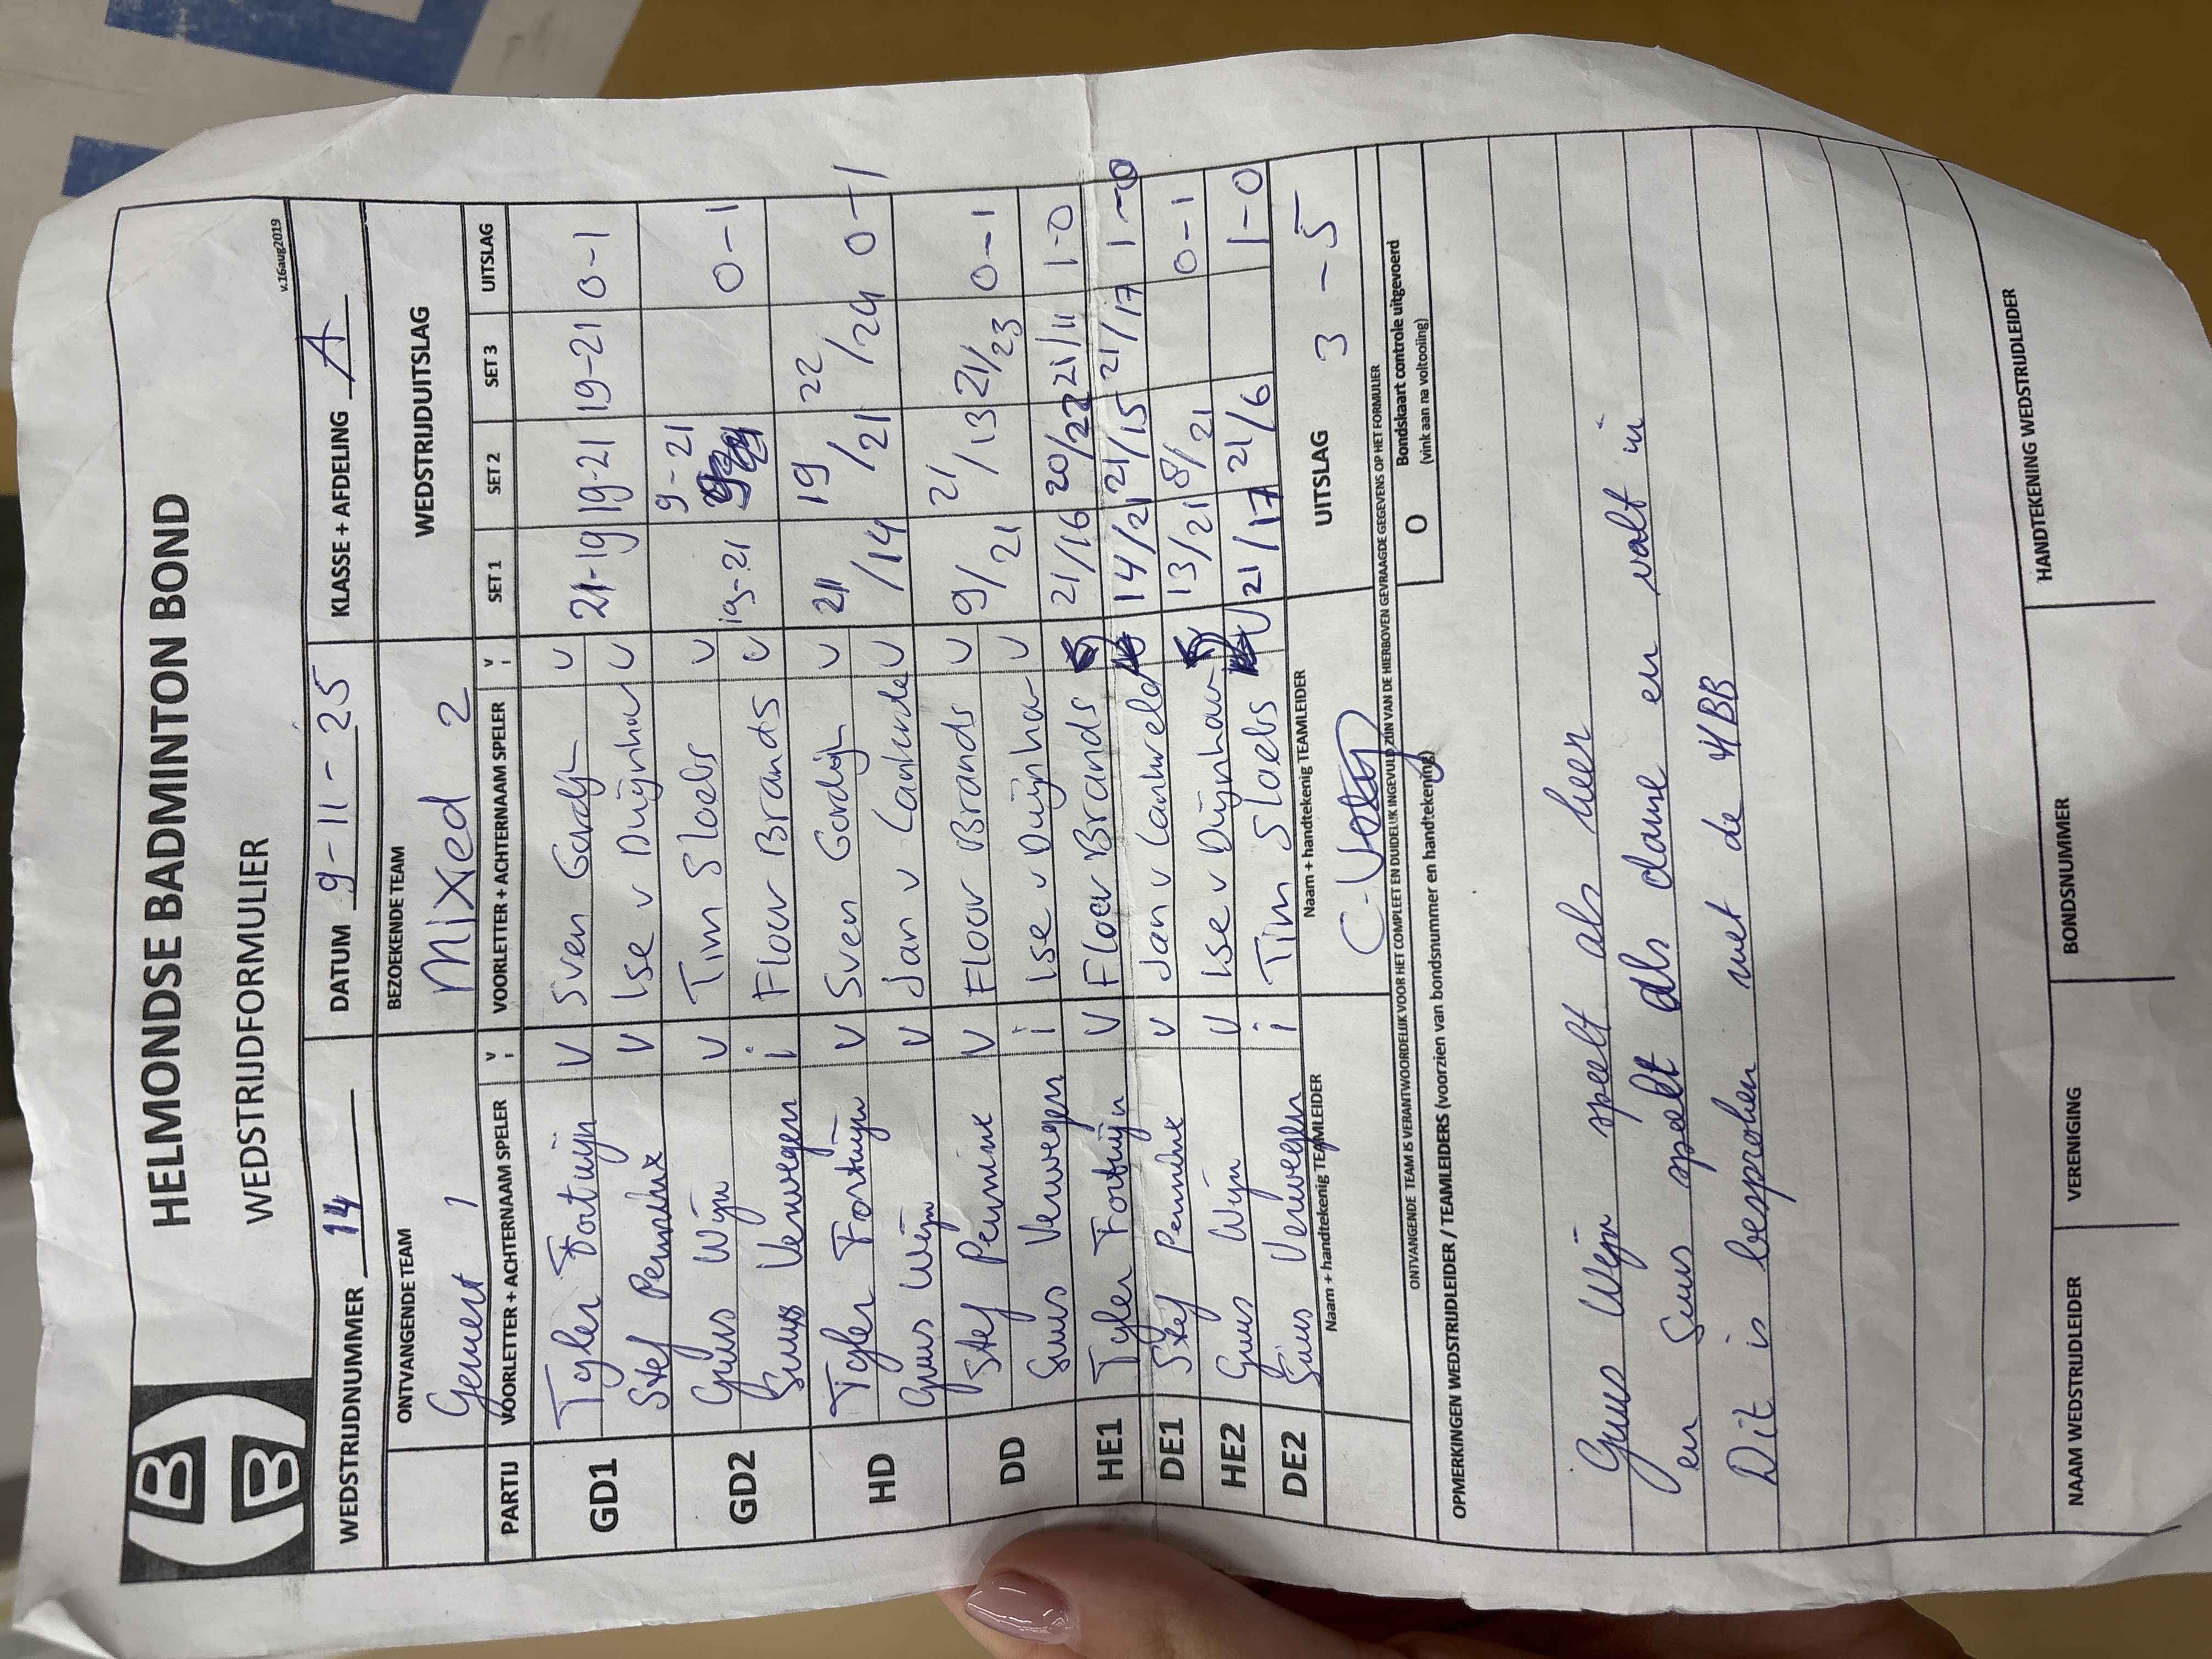 HELMONDSE BADMINTON BOND
WEDSTRIJDFORMULIER
v.16aug2019
WEDSTRIJDNUMMER 14 DATUM 9-11-25 KLASSE + AFDELING A
ONTVANGENDE TEAM BEZOEKENDE TEAM WEDSTRIJDUITSLAG
Gemert 1 Mixed 2
PARTIJ VOORLETTER + ACHTERNAAM SPELER V I VOORLETTER + ACHTERNAAM SPELER V I SET 1 SET 2 SET 3 UITSLAG
GD1 Tyler Fortuijn V Sven Gordijn V 21-19 19-21 19-21 0-1
Stef Penninx V Ise v Duijnhov V
GD2 Guus Wijn V Tim Slaets V 19-21 9-21 0-1
Suus Verwegen i Floor Brands V
HD Tyler Fortuijn V Sven Gordijn V 21/14 19/21 22/24 0-1
Guus Wijn V Jan v V
DD Stef Penninx V Floor Brands V 9/21 21/13 21/23 0-1
Suus Verwegen i Ise v Duijnhov V
HE1 Tyler Fortuijn V Floor Brands 21/16 20/22 21/11 1-0
DE1 Stef Penninx V Jan v 14/21 21/15 21/17 1-0
HE2 Guus Wijn V Ise v Duijnhov 13/21 8/21 0-1
DE2 Suus Verwegen i Tim Slaets V 21/17 21/6 1-0
Naam + handtekenig TEAMLEIDER Naam + handtekenig TEAMLEIDER UITSLAG 3-5
ONTVANGENDE TEAM IS VERANTWOORDELIJK VOOR HET COMPLEET EN DUIDELIJK INGEVULD ZIJN VAN DE HIERBOVEN GEVRAAGDE GEGEVENS OP HET FORMULIER
O Bondskaart controle uitgevoerd
(vink aan na voltooiing)
OPMERKINGEN WEDSTRIJDLEIDER / TEAMLEIDERS (voorzien van bondsnummer en handtekening)
Guus Wijn speelt als heer
en Suus speelt als dame en valt in
Dit is besproken met de HBB
NAAM WEDSTRIJDLEIDER VERENIGING BONDSNUMMER HANDTEKENING WEDSTRIJDLEIDER